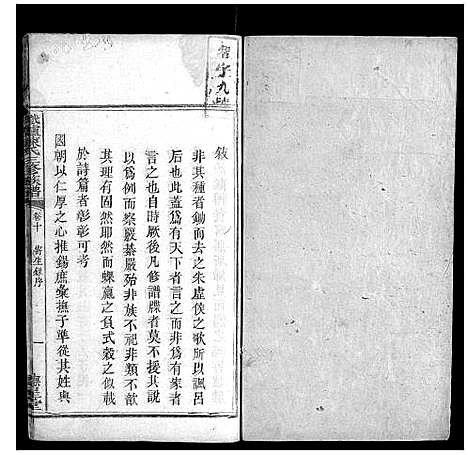 敍
非其種者鋤而去之朱虛侯之歌所以諷呂
后也此蓋爲有天下者言之而非爲有家者
言之也自時厥後凡修譜牒者莫不援其說
以爲例而察嚴綦嚴殆非族不祀非類不歆
理有固然耶然而螺蠃之負式穀之似載
於詩篇者彰彰可考
國朝以仁厚之心推錫庶彙撫子準從其姓與
氏三修族譜
卷十
序
一